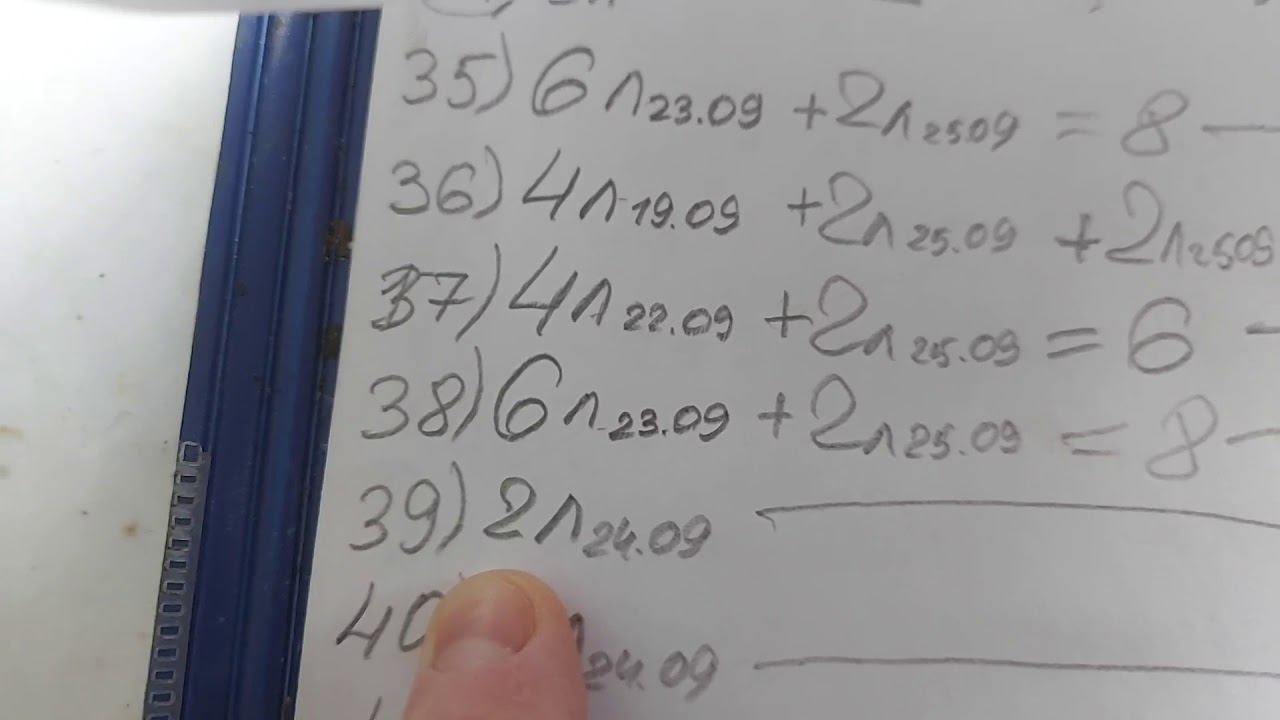 35) 6л 23.09 + 2л 25.09 = 8 —
36) 4л 19.09 + 2л 25.09 + 2л 25.09
37) 4л 22.09 + 2л 25.09 = 6 -
38) 6л 23.09 + 2л 25.09 = 8 —
39) 2л 24.09 —
40 л 24.09 —